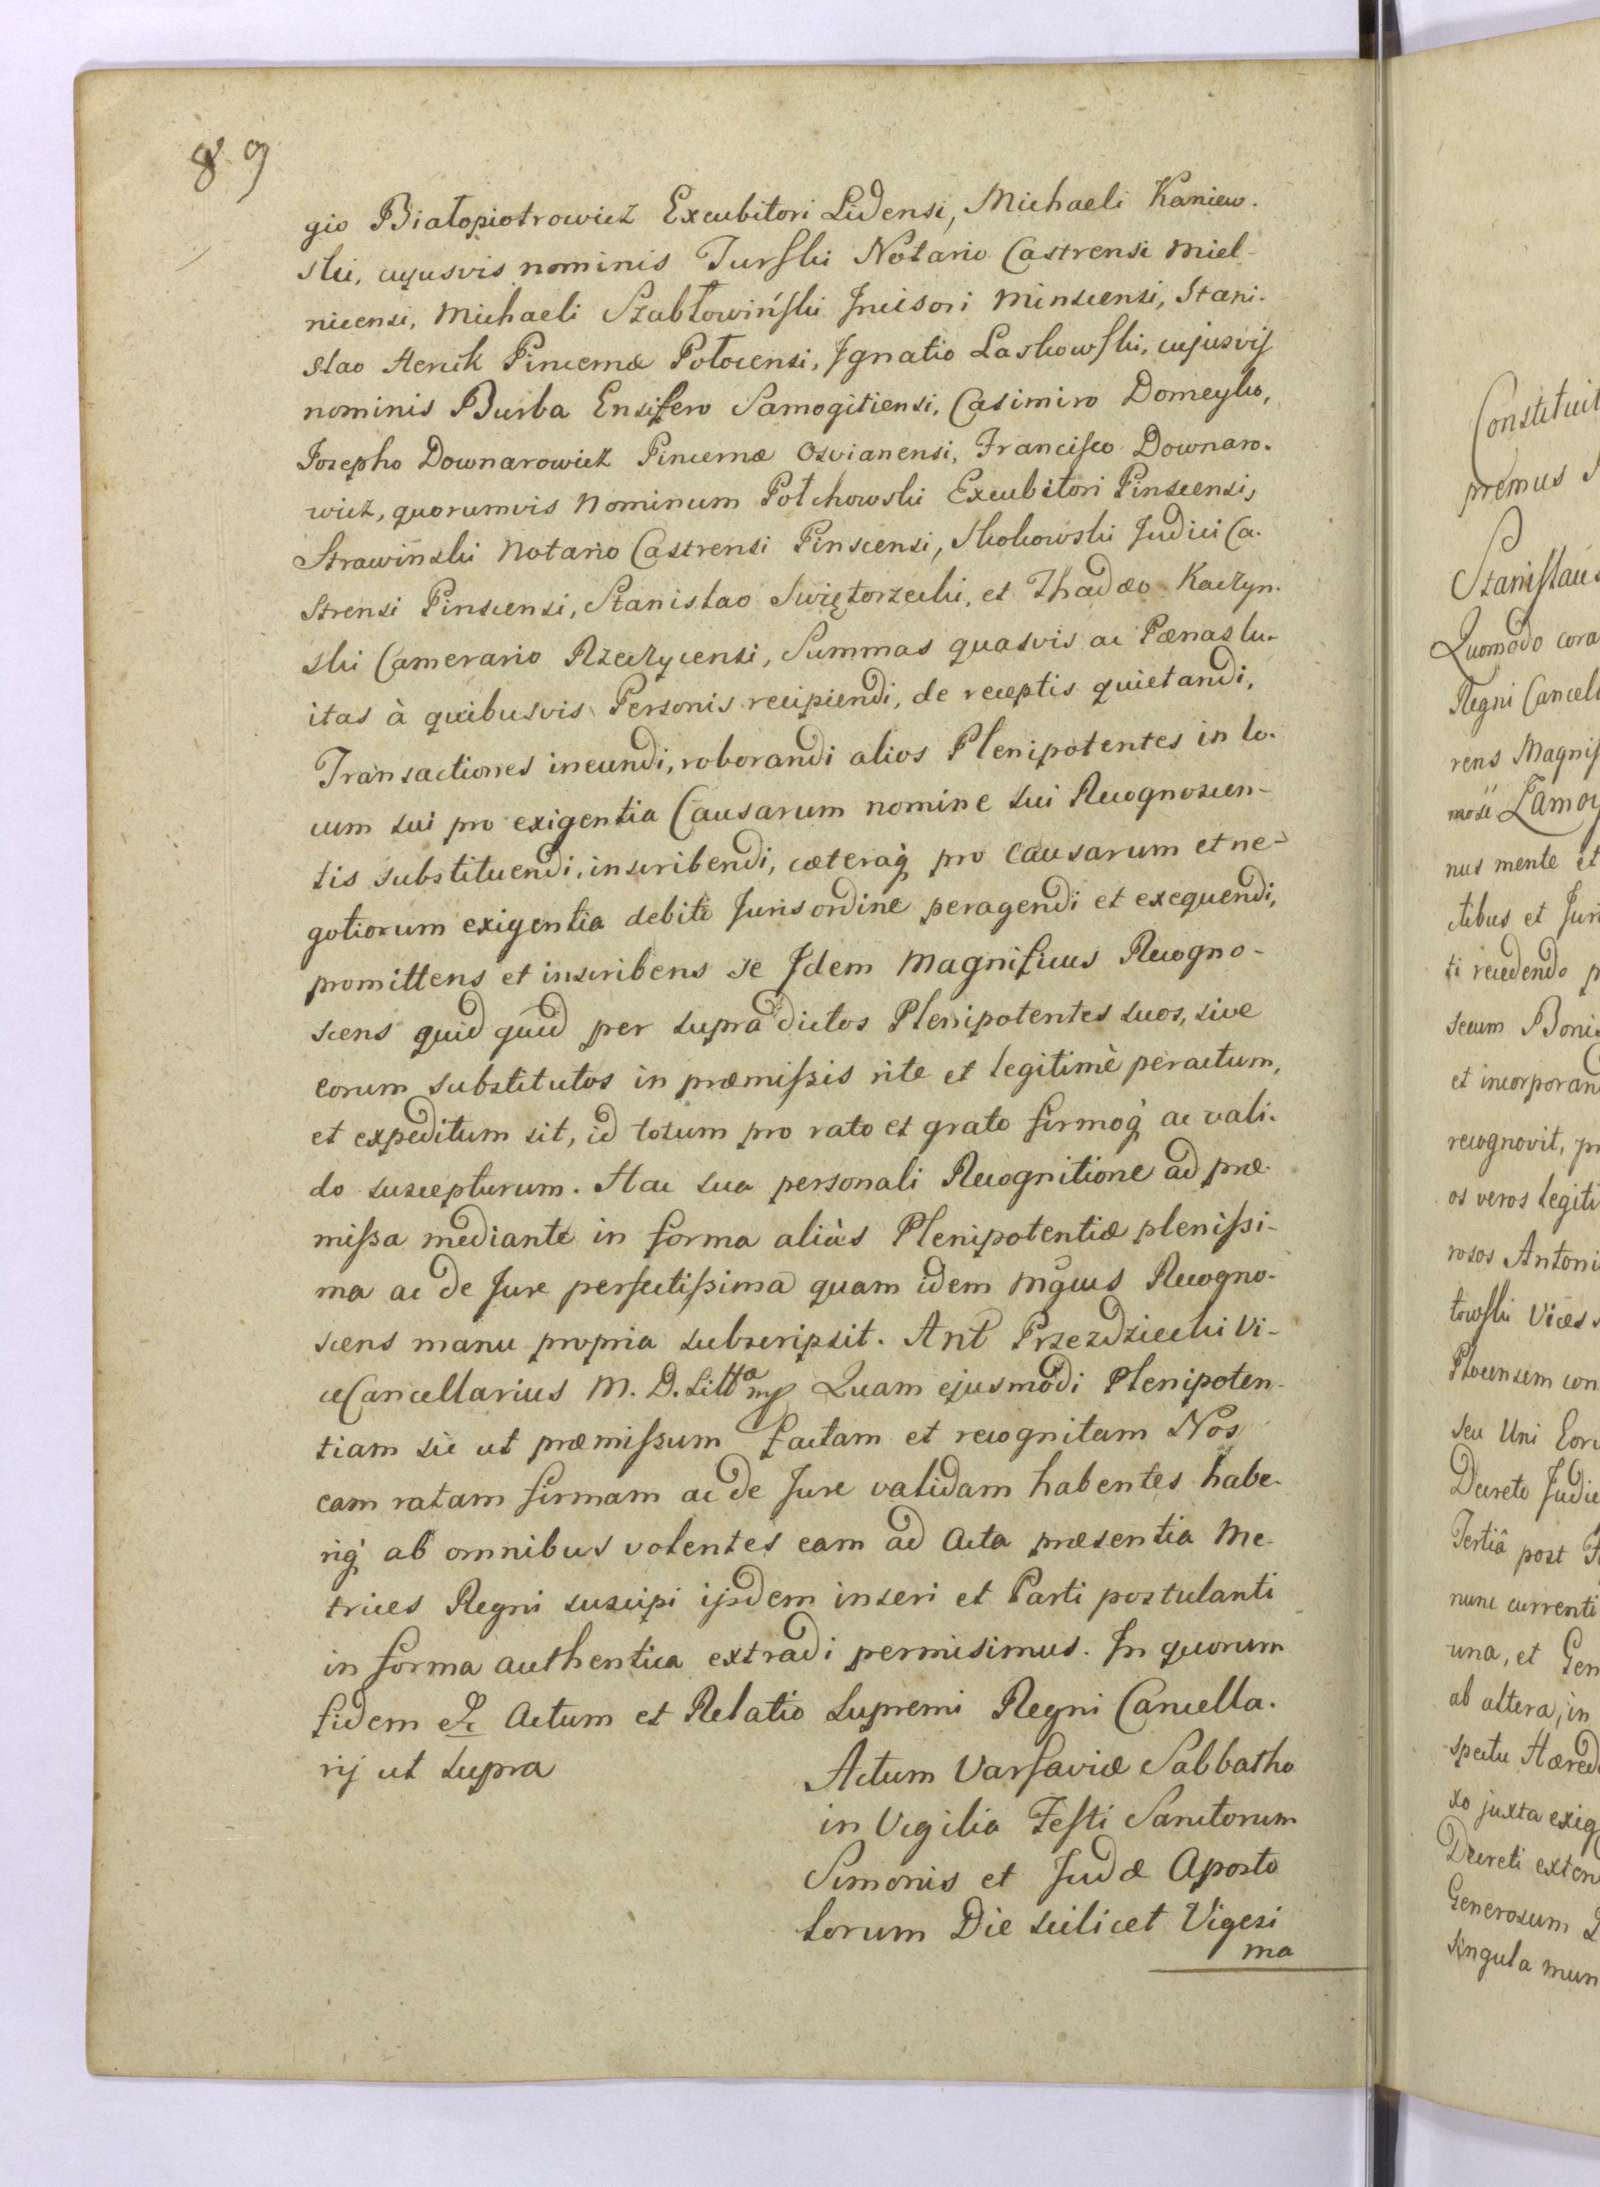 89
gio Białopiotrowicz Excubitori Lidensi, Michaeli Kaniew-
ski, cujusvis nominis Turski Notario Castrensi Miel-
nicensi, Michaeli Szabłowiński Incisori Minscensi, Stani-
slao Aenik Pincernæ Połocensi, Ignatio Laskowski, cujusvis
nominis Burba Ensifero Samogitiensi, Casimiro Domeyko,
Josepho Downarowicz Pincernæ Osvianensi, Francisco Downaro-
wicz, quorumvis Nominum Połchowski Excubitori Pinscensi,
Strawiński Notario Castrensi Pinscensi, Skokowski Judici Ca-
strensi Pinscensi, Stanislao Swiętorzecki, et Thadæo Kaczyn-
ski Camerario Rzeczycensi, Summas quasvis ac Pænas lu-
itas à quibusvis Personis recipiendi, de receptis quietandi,
Transactiones ineundi, roborandi alios Plenipotentes in lo-
cum sui pro exigentia Causarum nomine sui Recognoscen-
tis substituendi, inscribendi, cæteraq́ pro causarum et ne-
gotiorum exigentia debite Juris ordine peragendi et exequendi,
promittens et inscribens se Idem Magnificus Recogno-
scens quid quid per supra dictos Plenipotentes suos, sive
eorum substitutos in præmissis rite et legitimè peractum,
et expeditum sit, id totum pro rato et grato firmoq́ ac vali-
do suscepturum. Hac sua personali Recognitione ad præ-
missa mediante in forma aliàs Plenipotentiæ plenissi-
ma ac de Jure perfectissima quam idem Mgcus Recogno-
scens manu propria subscripsit. Ant Przezdziecki Vi-
ceCancellarius M. D. Litt Quam ejusmodi Plenipoten-
tiam sic ut præmissum factam et recognitam Nos
eam ratam firmam ac de Jure validam habentes habe-
riq́ ab omnibus volentes eam ad Acta præsentia Me-
trices Regni suscipi ijsdem inseri et Parti postulanti
in forma authentica extradi permisimus. In quorum
fidem &c Actum et Relatio Supremi Regni Cancella-
rij ut supra
Actum Varsaviæ Sabbatho
in Vigilia Festi Sanctorum
Simonis et Judæ Aposto
lorum Die scilicet Vigesi
ma
Constituit
premus
Stanislaus
Quomodo cora
Regni Cancell
rens Magnif
mosi Zamoy
nus mente et
ctibus et Juri
ti recedendo p
secum Bonis
et incorporan
recognovit, pr
os veros legiti
rosos Antoni
towski Vices
Plocensem con
seu Uni Eoru
Decreto Judic
Tertiâ post F
nunc currenti
una, et Gen
ab altera, in
spectu Hæred
xo juxta exig
Decreti exten
Generosum
singula mun